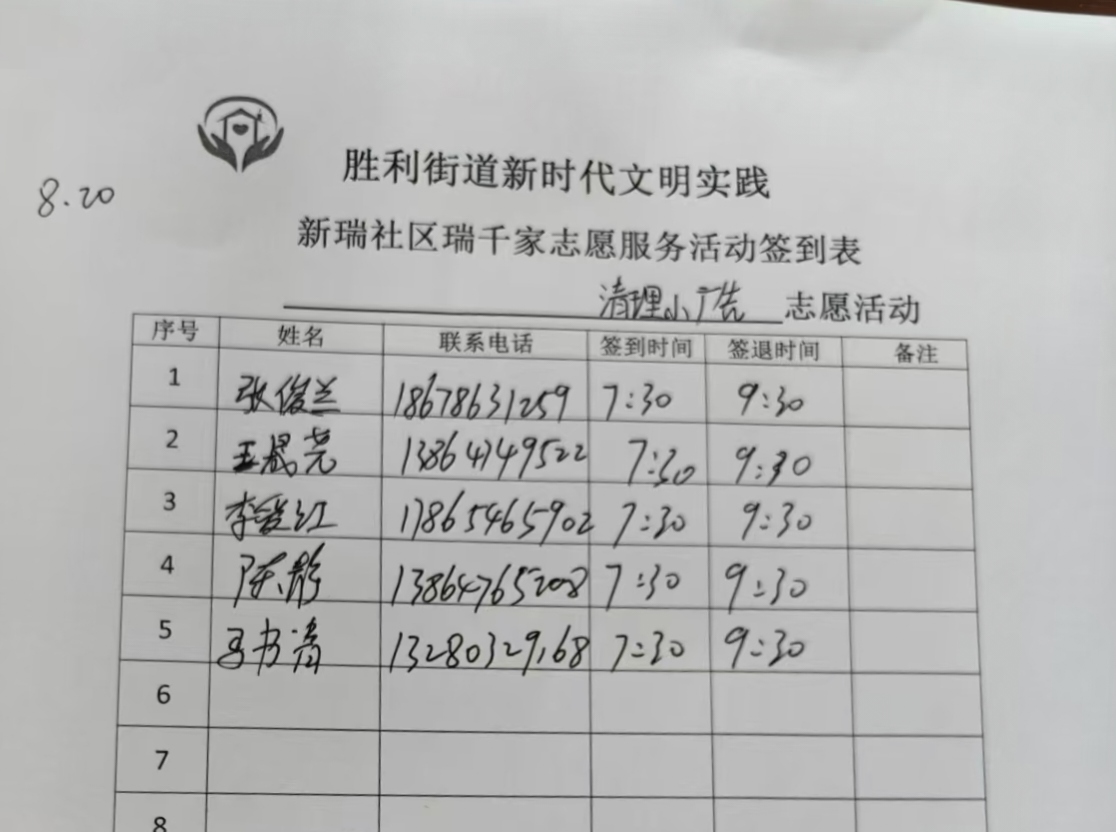 8.20
胜利街道新时代文明实践
新瑞社区瑞千家志愿服务活动签到表
清理小广告 志愿活动
序号 姓名 联系电话 签到时间 签退时间 备注
1 张俊兰 18678631259 7:30 9:30
2 王晟亮 13864749522 7:30 9:30
3 李爱红 17865465902 7:30 9:30
4 陈静 13864765208 7:30 9:30
5 马书清 13280329168 7:30 9:30
6
7
8